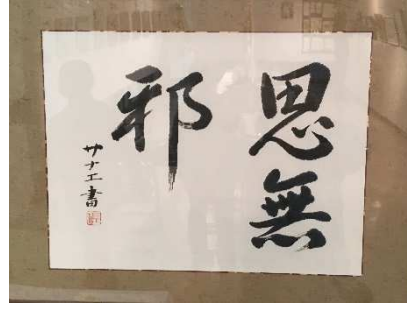 思無
邪
サナエ書